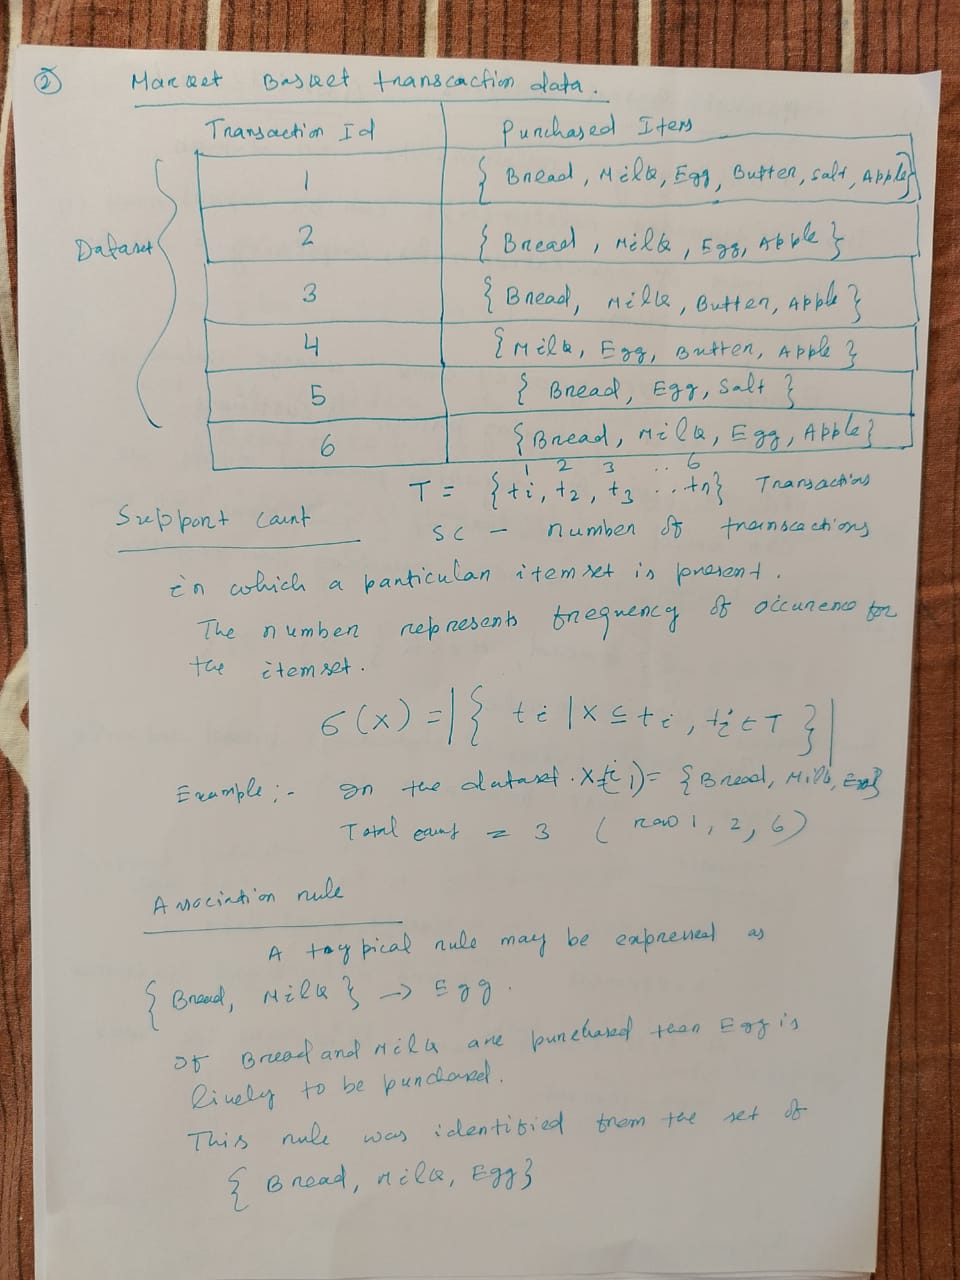 ②
Market Basket transcaction data.
Transaction Id Purchased Items
Dataset
1 { Bread, Milk, Egg, Butter, Salt, Apple}
2 { Bread, Milk, Egg, Apple }
3 { Bread, Milk, Butter, Apple }
4 { Milk, Egg, Butter, Apple }
5 { Bread, Egg, Salt }
6 { Bread, Milk, Egg, Apple}
1 2 3 .. 6
T = { ti, t2, t3 ... tn} Transactions
Support count
SC - number of trainscactions
in which a particular itemset is present.
The number represents frequency of occurence for
the itemset.
σ(x) = |{ ti | X ⊆ ti, ti ∈ T }|
Example :- In the dataset. = { Bread, Milk, Egg}
Total count = 3 ( row 1, 2, 6 )
Association rule
A typical rule may be expressed as
{ Bread, Milk } -> Egg.
If Bread and Milk are purchased then Egg is
likely to be purchased.
This rule was identified from the set of
{ Bread, Milk, Egg}